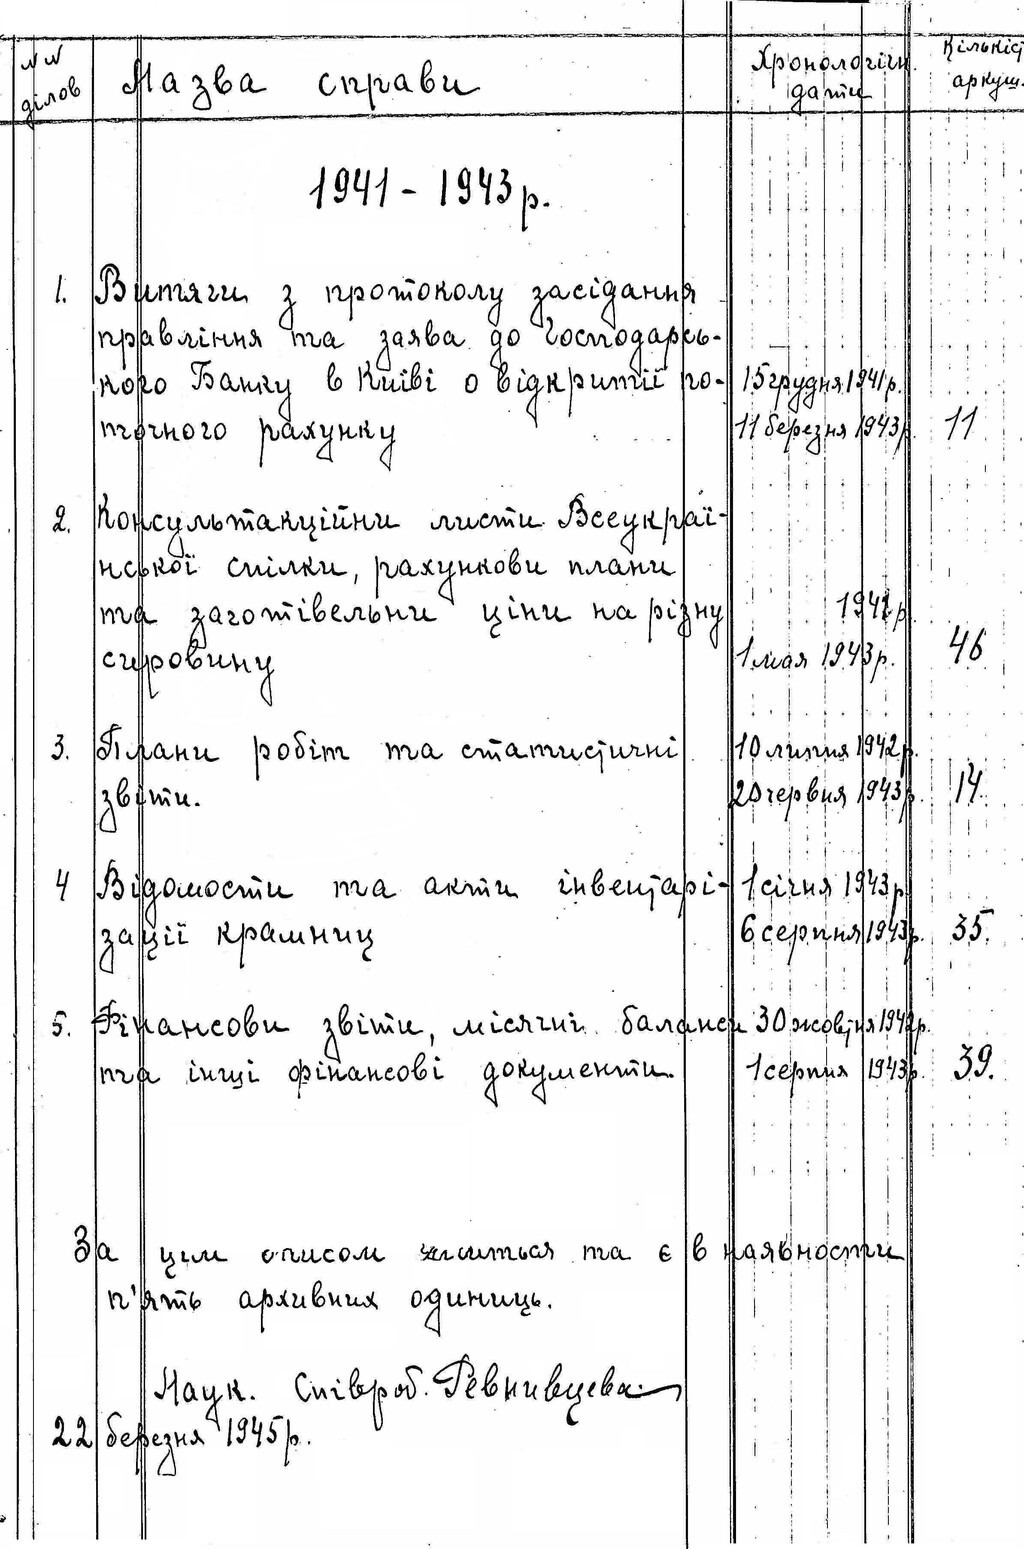 №№ ділов
Назва справи
Хронологічн. дати
Кількіст аркуш.
1941 - 1943 р.
1. Витяги з протоколу засідання
правління та заява до Господарсь-
кого Банку в Київі о відкритії по- 15 грудня 1941 р.
точного рахунку 11 березня 1943 р. 11
2. Консультакційни листи Всеукраї-
нської спілки, рахункови плани
та заготівельни ціни на різну 1941 р.
сировину 1 мая 1943 р. 46
3. Плани робіт та статистичні 10 липня 1942 р.
звіти. 20 червня 1943 р. 14
4 Відомости та акти інвентарі- 1 січня 1943 р.
зації крамниц 6 серпня 1943 р. 35.
5. Фінансови звіти, місячні баланси 30 жовтня 1942 р.
та інші фінансові документи. 1 серпня 1943 р. 39.
За цим описом та є в наявности
п'ять архивних одиниць.
Наук. Співроб. Ревнивцева
22 березня 1945 р.